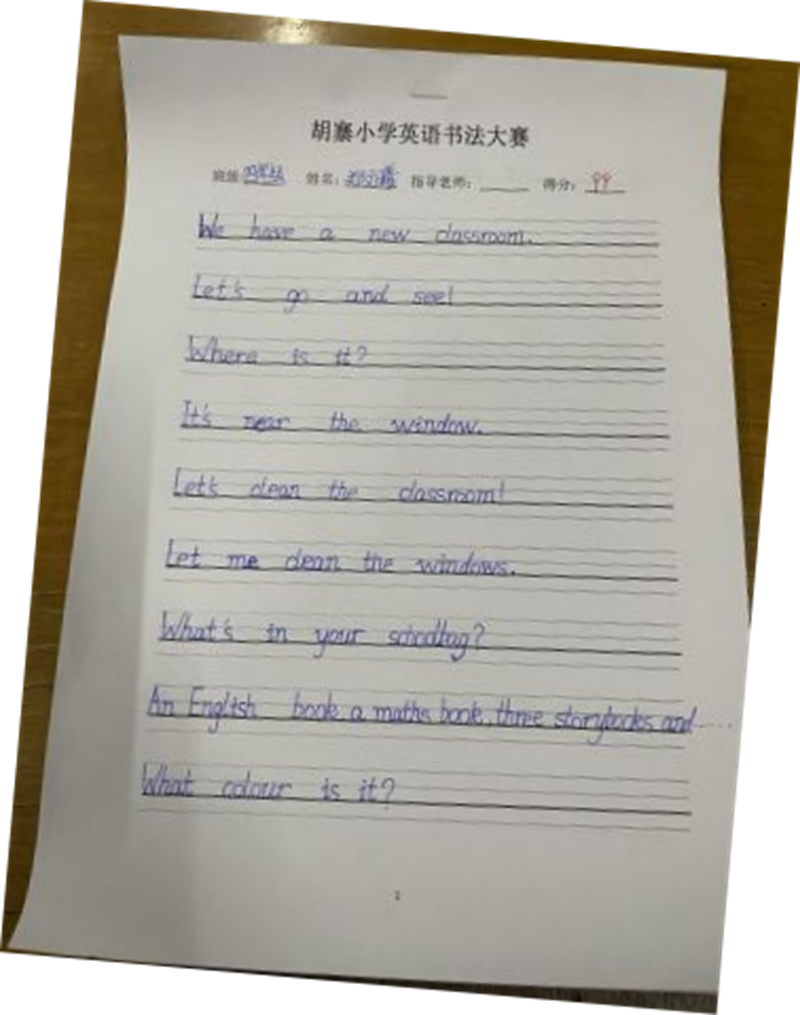 胡寨小学英语书法大赛
班级: 四年级 姓名: 指导老师: 得分: 99
We have a new classroom.
Let's go and see!
Where is it?
It's near the window.
Let's clean the classroom!
Let me clean the windows.
What's in your schoolbag?
An English book, a maths book, three storybooks and......
What colour is it?
2